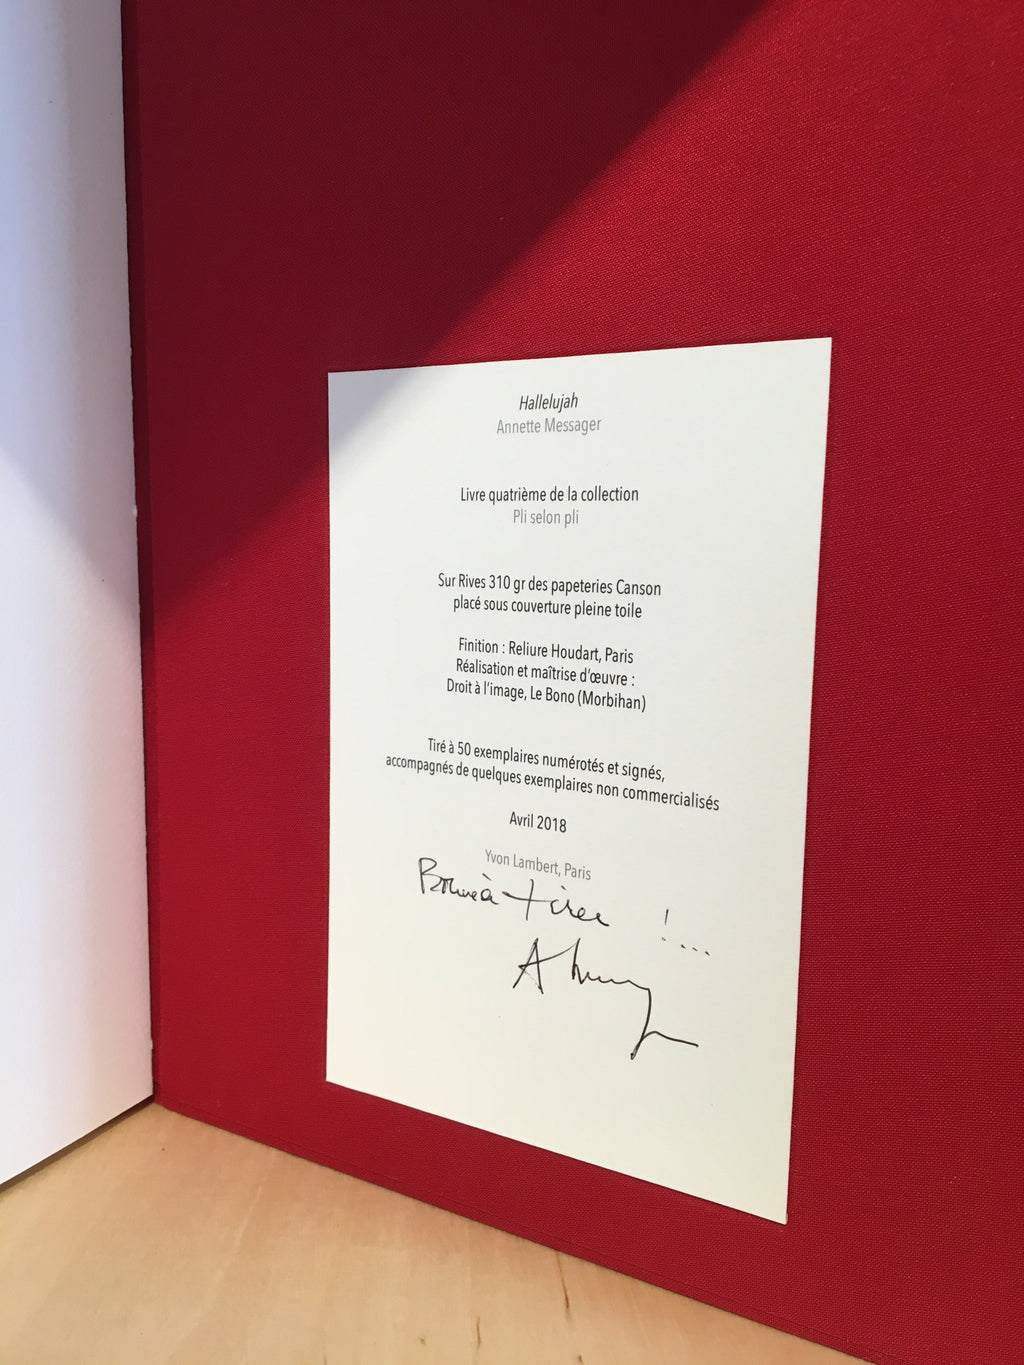 Hallelujah
Annette Messager
Livre quatrième de la collection
Pli selon pli
Sur Rives 310 gr des papeteries Canson
placé sous couverture pleine toile
Finition : Reliure Houdart, Paris
Réalisation et maîtrise d'œuvre :
Droit à l'image, Le Bono (Morbihan)
Tiré à 50 exemplaires numérotés et signés,
accompagnés de quelques exemplaires non commercialisés
Avril 2018
Yvon Lambert, Paris
à tirer !....